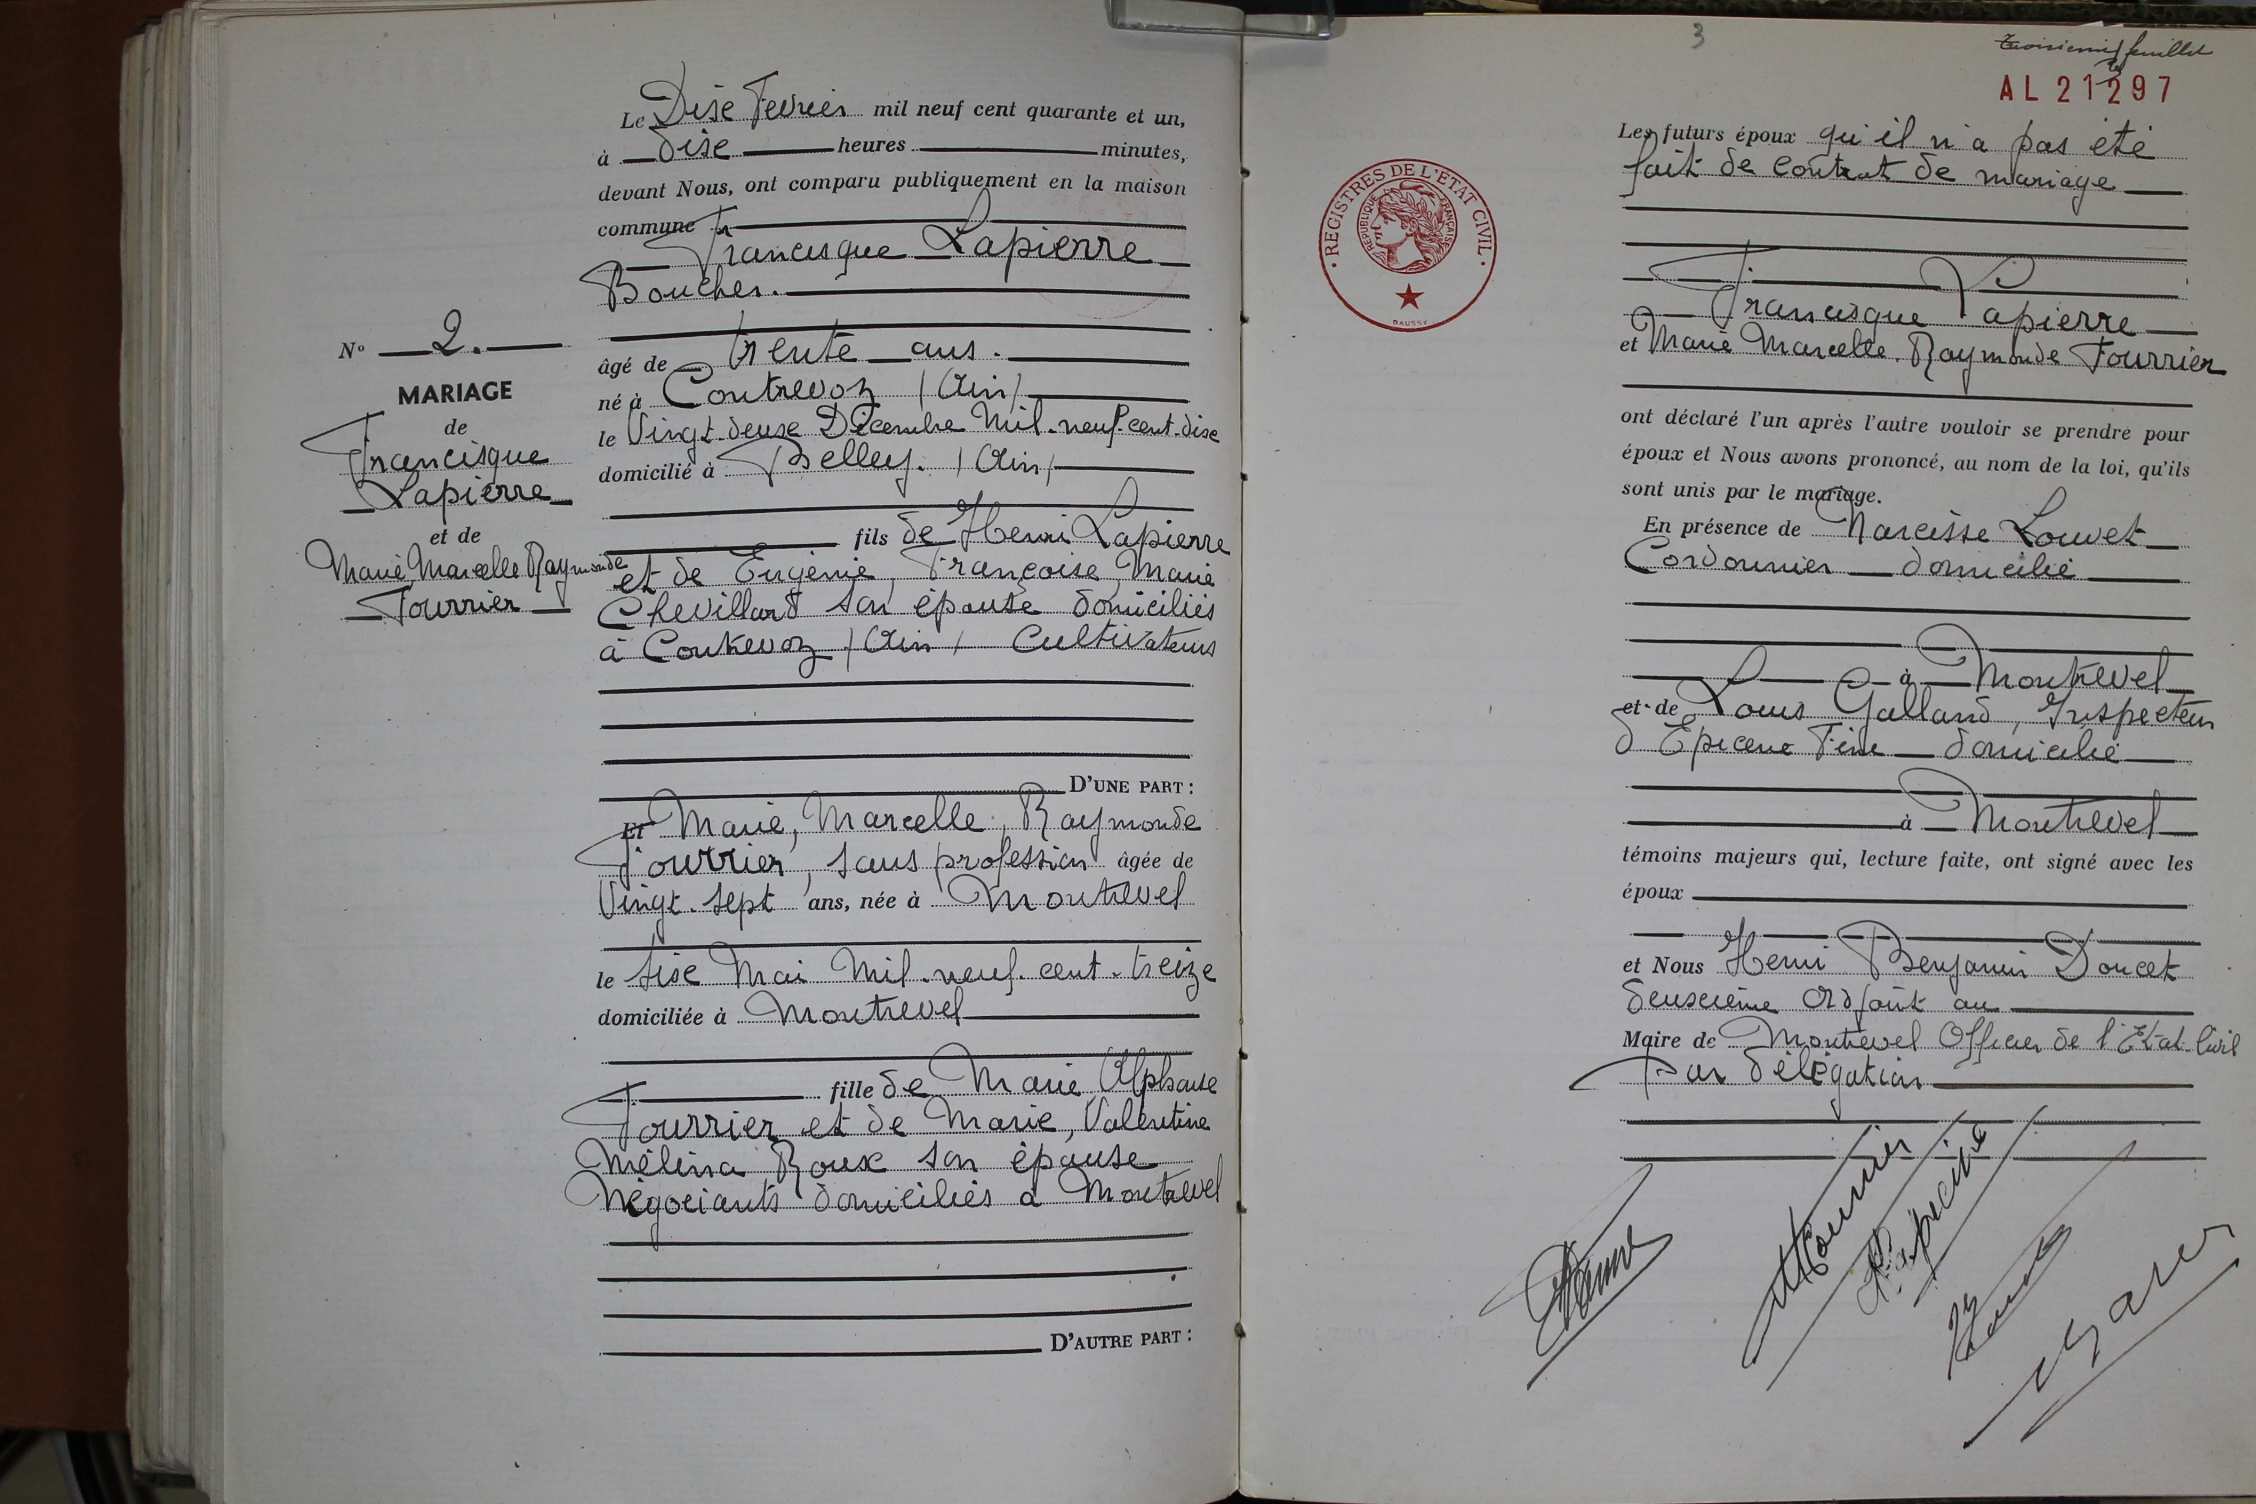 Le Dise Fevrier mil neuf cent quarante et un,
à dise heures minutes,
devant Nous, ont comparu publiquement en la maison
commune
Francisque Lapierre
Boucher.
âgé de trente ans.
né à Contrevoz (Ain)
le Vingt-deuse Décembre Mil-neuf-cent-dise
domicilié à Belley. (Ain)
fils de Henri Lapierre
et de Eugénie, Françoise, Marie
Chevillard son épouse domiciliés
à Contrevoz (Ain) Cultivateurs
D'UNE PART :
Et Marie, Marcelle, Raymonde
Fourrier, sans profession âgée de
Vingt-sept ans, née à Montrevel
le sise Mai Mil-neuf-cent-treize
domiciliée à Montrevel
fille de Marie Alphonse
Fourrier et de Marie, Valentine
Mélina Roux son épouse
Négociants domiciliés à Montrevel
D'AUTRE PART :
No 2.
MARIAGE
de
Francisque
Lapierre
et de
Marie Marcelle Raymonde
Fourrier
3
troisième feuillet
AL 21297
Les futurs époux qu'il n'a pas été
fait de contrat de mariage
REGISTRES DE L'ETAT CIVIL
REPUBLIQUE FRANÇAISE
DAUSSY
Francisque Lapierre
et Marie Marcelle Raymonde Fourrier
ont déclaré l'un après l'autre vouloir se prendre pour
époux et Nous avons prononcé, au nom de la loi, qu'ils
sont unis par le mariage.
En présence de Narcisse Louvet
Cordonnier domicilié
à Montrevel
et de Louis Galland, Inspecteur
d'Epicerie Fine domicilié
à Montrevel
témoins majeurs qui, lecture faite, ont signé avec les
époux
et Nous Henri Benjamin Doucet
deuscième Adjoint au
Maire de Montrevel Officier de l'Etat-Civil
Par délégation
MFourrier